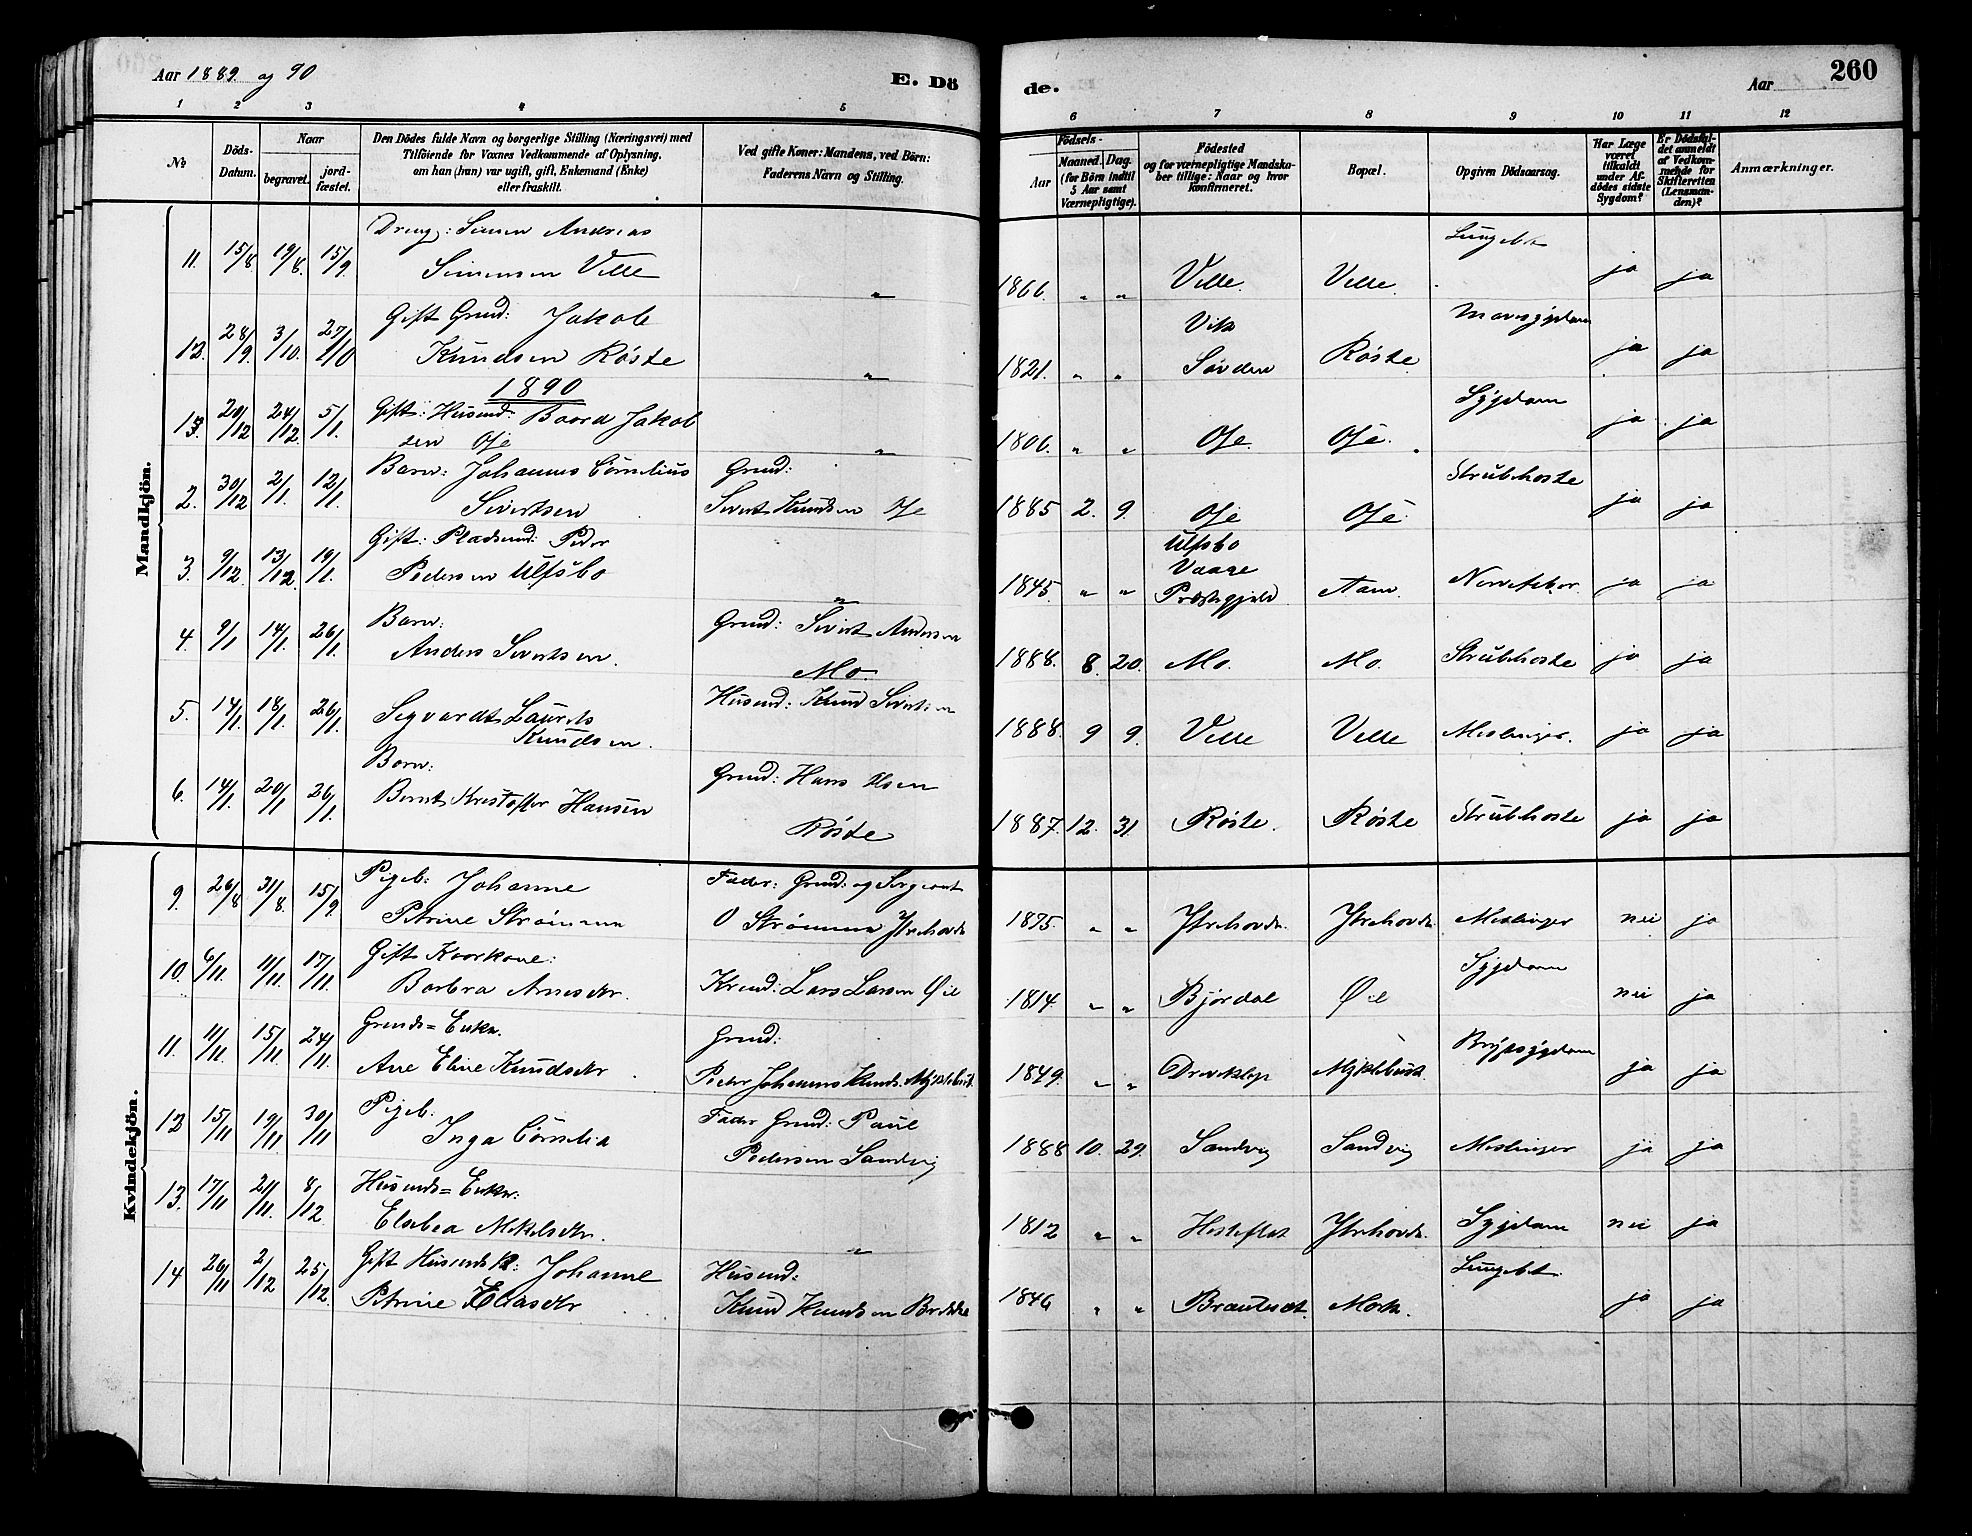 Aar 1889 og 90
E. Dö
de.
Aar
260
1 2 3 4 5 6 7 8 9 10 11 12
No
Döds-Datum.
Naar
begravet.
jord-fæstet.
Den Dödes fulde Navn og borgerlige Stilling (Næringsvei) med
Tilföiende for Voxnes Vedkommende af Oplysning,
om han (hun) var ugift, gift, Enkemand (Enke)
eller fraskilt.
Ved gifte Koner: Mandens, ved Börn:
Faderens Navn og Stilling.
Födsels-
Aar
Maaned. Dag.
(for Börn indtil
5 Aar samt
Værnepligtige).
Födested
og for værnepligtige Mandska-
ber tillige: Naar og hvor
konfirmeret.
Bopæl.
Opgiven Dödsaarsag.
Har Læge
været
tilkaldt
under Af-
dödes sidste
Sygdom?
Er Dödsfal-
det anmeldt
af Vedkom-
mende for
Skifteretten
(Lensman-
den)?
Anmærkninger.
Mandkjön.
11. 15/8 19/8. 15/9. Dreng: Simen Andreas
Simensen Velle " 1866. " " Velle. Velle. Lungebet ja ja
12. 28/9. 3/10. 27/10 Gift Grmd: Jakob
Knudsen Röste " 1821. " " Vik
Søvden Röste Mavesygdom ja ja
1890
13. 20/12 24/12. 5/1. Gift: Husmd: Baard Jakob
sen Ose " 1806. " " Ose. Ose. Sygdom ja ja
2. 30/12 2/1. 12/1. Barn: Johannes Cornelius
Sivertsen Grmd:
Sivert Knudsen Ose 1885 2. 9. Ose Ose Strubehoste ja ja
3. 9/12. 13/12. 19/1. Gift: Pladsmd: Peder
Pedersen Ulfsbo " 1845. " " Ulfsbo
Præstegjeld Aam ja ja
4. 9/1 14/1. 26/1. Barn:
Anders Sivertsen. Grmd: Sivert Andersen
Mo 1888. 8. 20. Mo. Mo. Strubehoste ja ja
5. 14/1. 18/1. 26/1. Sigvardt Laurits
Knudsen. Husmd: Knud Sivertsen 1888. 9 9. Velle Velle Meslinger. ja ja
6. 14/1. 20/1 26/1. Barn:
Bernt Kristoffer Hansen Grmd: Hans Olsen
Röste 1887. 12. 31. Röste. Röste Strubehoste ja ja
Kvindekjön.
9. 26/8 31/8. 15/9. Pigeb: Johanne
Petrine Strømmen Fader: Grmd: og Sergeant
O Strømmen Ytrehovde 1875. " " Ytrehovde. Ytrehovde. Meslinger nei ja
10. 6/11. 11/11. 17/11. Gift Kaarkone:
Barbra Arnesdtr. Kaarmd: Lars Larsen Öie 1814. " " Bjørdal Öie Sygdom nei ja
11. 11/11. 15/11. 24/11. Grmds= Enke.
Ane Eline Knudsdtr Grmd:
Peder Johannes Knuds. Myklebust. 1849. " " Myklebust. Brystsygdom ja ja
12 15/11 19/11. 30/11 Pigeb:
Inga Cornelia Fader Grmd: Paul
Pedersen Sandvig 1888 10. 29. Sandvig Sandvig Meslinger ja ja
13. 17/11 21/11. 8/12. Husmds= Enke:
Elsebea Mikelsdtr. " 1812 " " Hesteflot Ytrehovde. Sygdom nei ja
14 26/11 2/12 25/12. Gift Husmds K: Johanne
Petrine Eliasdtr Husmd:
Knud Knudsen 1846 " " Brautesæt. Mork. Lungebet. ja ja